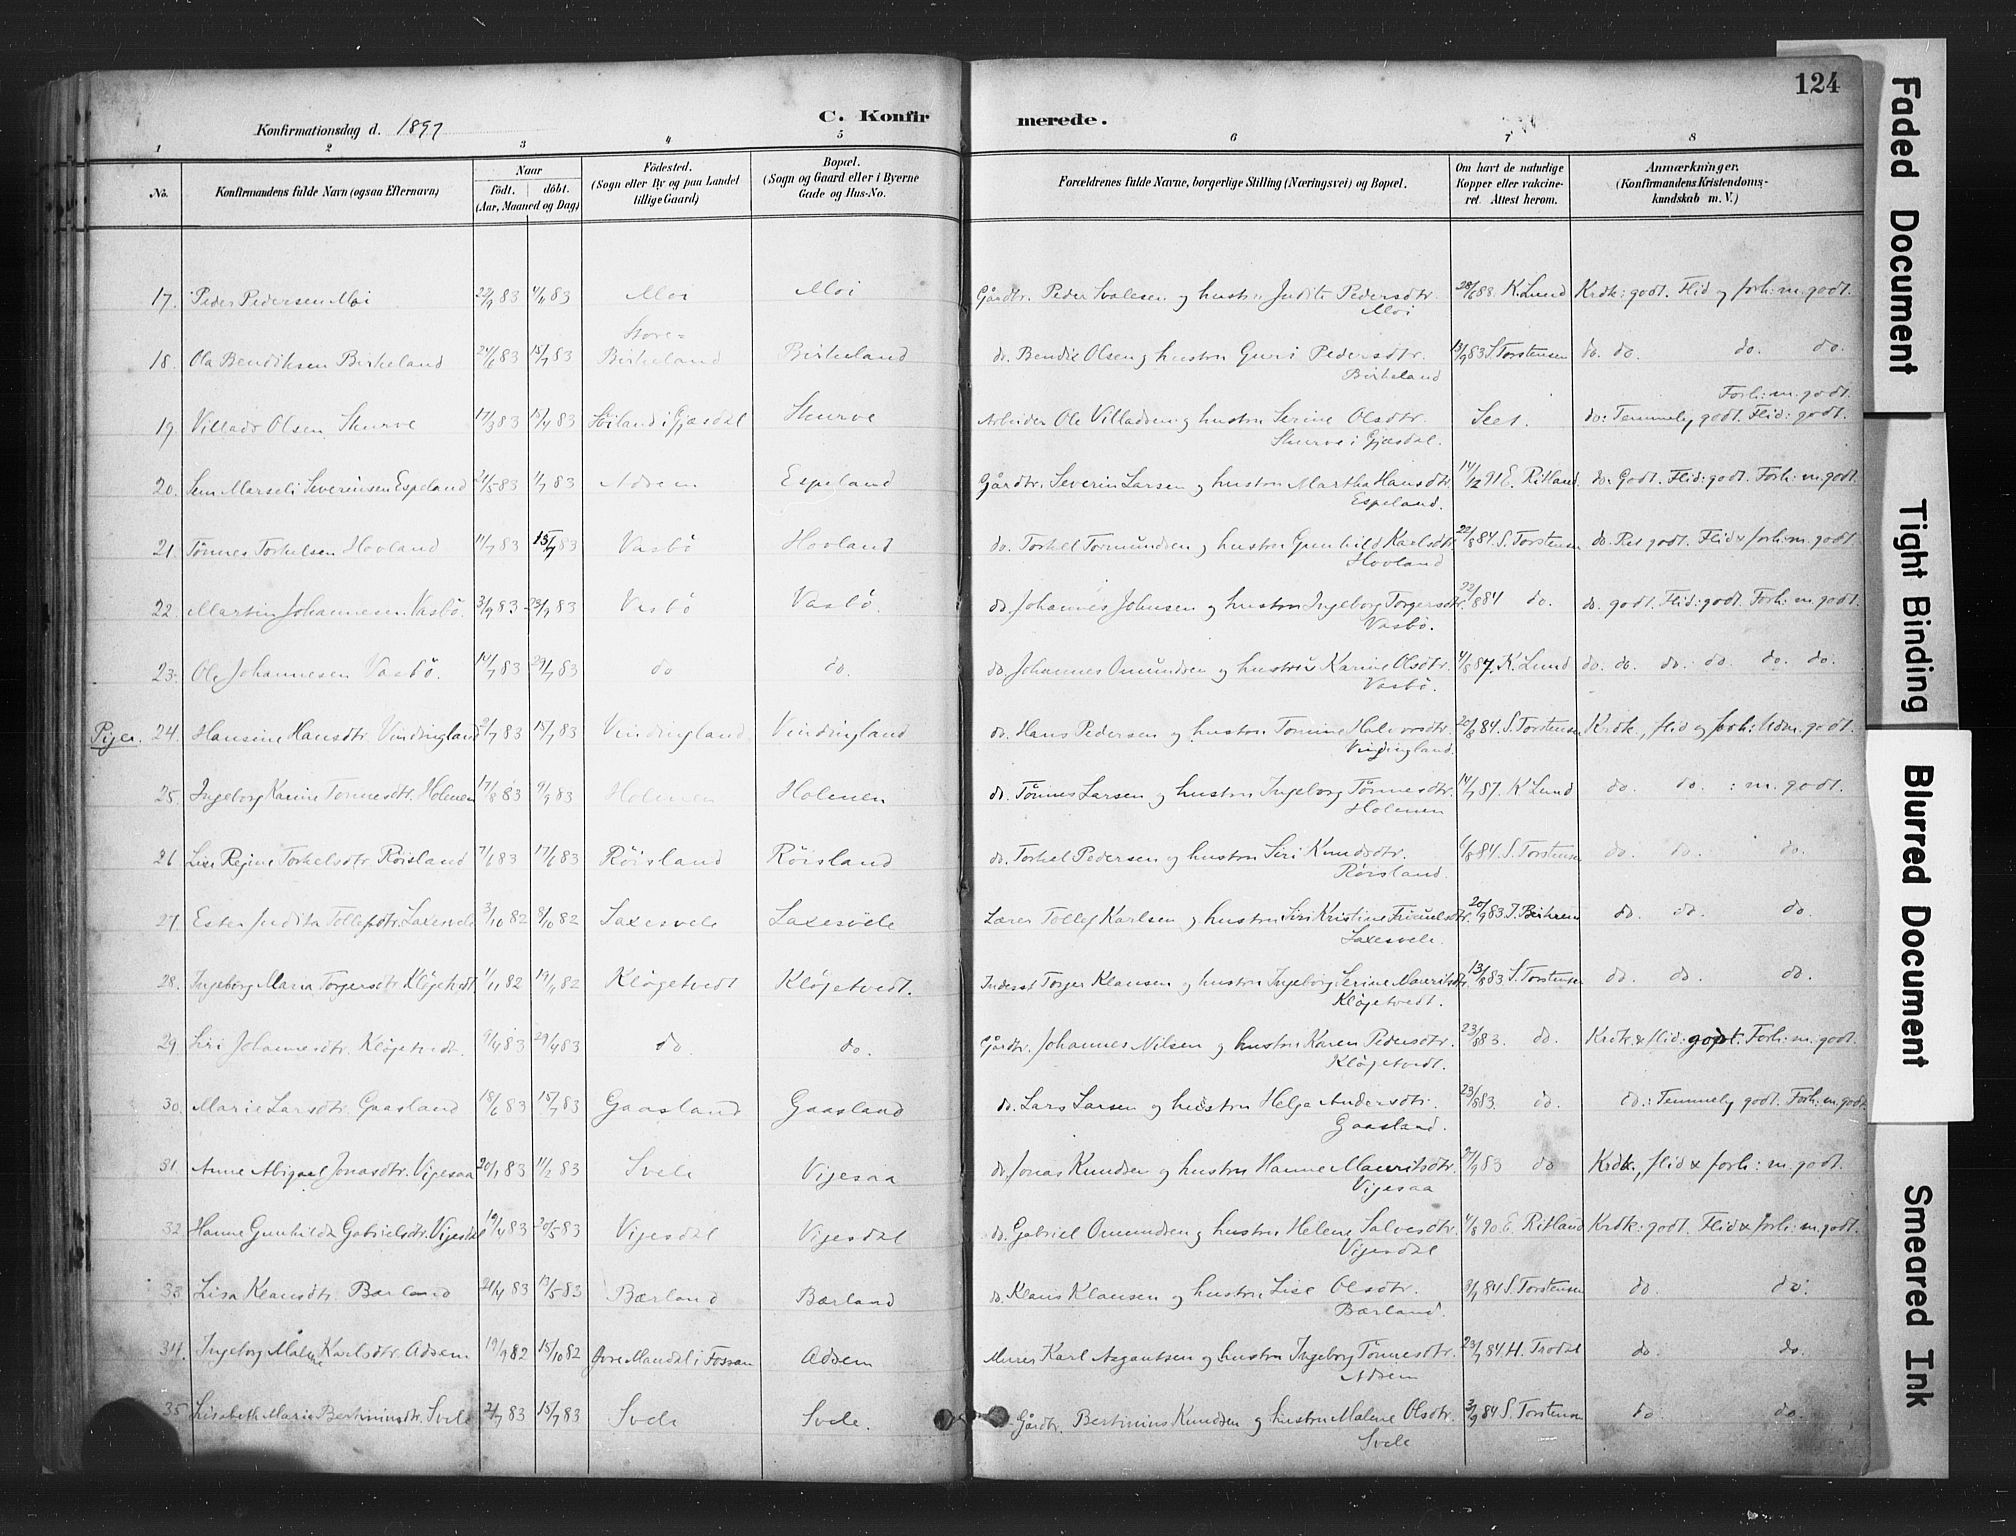 124
Konfirmationsdag d. 1897
C. Konfir merede.
1 2 3 4 5 6 7 8
No. Konfirmandens fulde Navn (ogsaa Efternavn) Naar født. døbt. (Aar, Maaned og Dag) Fødested. (Sogn eller By og paa Landet tillige Gaard) Bopæl. (Sogn og Gaard eller i Byerne Gade og Hus-No. Forældrenes fulde Navne, borgerlige Stilling (Næringsvei) og Bopæl. Om havt de naturlige Kopper eller vakcineret. Attest herom. Anmærkninger. (Konfirmandens Kristendomskundskab m. V.)
17. Peder Pedersen Moi 83 83 Moi Moi Gårdbr. Peder Svalesen og hustru Judite Pedersdtr. Moi 28/6 88. K. Lund Krdk: godt. Flid og forh: m. godt.
18. Ola Bendiksen Birkeland 24/6 83 15/7 83 Store-Birkeland Birkeland do. Bendic Olsen og hustru Guri Pedersdtr. Birkeland 13/9 83 S. Torstensen do. do. do. do.
19. Villads Olsen Skurve 17/3 83 15/4 83 i Gjæsdal Skurve Arbeider Ole Villadsen og hustru Serine Olsdtr. Skurve i Gjæsdal. Seet. do: Temmelig godt. Flid: godt. Forh: m. godt.
20. Sem Marseli Severinsen Espeland 24/5 83 1/7 83 Adsem Espeland Gårdbr. Severin Larsen og hustru Martha Hansdtr. Espeland. 14/12 91 E. Ritland. do. Godt. Flid: godt. Forh: m. godt.
21. Tönnes Torkelsen Hovland 11/7 83 15/7 83 Vasbö Hovland do. Torkel Tormundsen og hustru Gunhild Karlsdtr. Hovland 22/8 84. S. Torstensen do. Ret godt. Flid & forh: m. godt.
22. Martin Johannesen Vasbö. 3/9 83 23/9 83 Vasbö Vasbö. do. Johannes Johnsen og hustru Ingeborg Torgersdtr. Vasbö. 22/8 84 do. do. godt. Flid: godt. Forh: m. godt.
23. Ole Johannesen Vasbö. 14/7 83 29/7 83 do do. do. Johannes Omundsen og hustru Karine Olsdtr. Vasbö. 4/8 87. K. Lund do. do. do. do. do. do.
Piger. 24. Hansine Hansdtr. Vindingland 2/7 83 15/7 83 Vindingland Vindingland do. Hans Pedersen og hustru Tomine Halvorsdtr. Vindingland. 84. S. Torstensen Krdk, flid og forh: Udm. godt.
25. Ingeborg Karine Tönnesdtr. Holmen 17/8 83 9/9 83 Holmen Holmen do. Tönnes Larsen og hustru Ingeborg Tönnesdtr. Holmen 14/7 87. K Lund do. do. : m. godt.
26 Lise Regine Torkelsdtr. Röisland 7/6 83 17/6 83 Röisland Röisland do. Torkel Pedersen og hustru Siri Knudsdtr. Röisland. 6/8 84. S. Torstensen do. do. do.
27. Ester Judita Tollefsdtr. Laxesvele 3/10 82 8/10 82 Laxesvele Laxesvele Lærer Tollef Karlsen og hustru Siri Kristine Laxesvele. 20/9 83 do. do. do.
28. Ingeborg Maria Torgersdtr. Klögetvedt 1/11 82 19/11 82 Klögetvedt Klögetvedt. Inderst Torger Klausen og hustru Ingeborg Serine Mauritsdtr. Klögetvedt. 13/8 83 S. Torstensen do. do. do.
29. Siri Johannesdtr. Klögetvedt. 9/4 83 29/4 83 do do. Gårdbr. Johannes Nilsen og hustru Karen Pedersdtr. Klögetvedt. 23/8 83. do. Krdk & flid: godt. Forh: m. godt.
30. Marie Larsdtr. Gaasland 18/6 83 15/7 83 Gaasland Gaasland do. Lars Larsen og hustru Helga Andersdtr. Gaasland. 23/8 83. do. do.: Temmelig godt. Forh: m. godt.
31. Anne Abigael Jonasdtr. Vigesaa 20/1 83 11/2 83 Svele Vigesaa do. Jonas Knudsen og hustru Hanne Mauritsdtr. Vigesaa 83 do Krdk, flid & forh: m. godt.
32. Hanne Gunhilda Gabrielsdtr. Vigesdal 19/4 83 20/5 83 Vigesdal Vigesdal do. Gabriel Omundsen og hustru Helene Salvesdtr. Vigesdal 4/8 90. E. Ritland Krdk: godt. Flid & forh: m. godt.
33. Lisa Klausdtr. Bærland 21/4 83 13/5 83 Bærland Bærland do. Klaus Klausen og hustru Lise Olsdtr. Bærland. 84 S. Torstensen do. do.
34. Ingeborg Malene Karlsdtr. Adsem 19/9 82 15/10 82 Övre Mandal i Fossan Adsem Murer Karl Asgautsen og hustru Ingeborg Tönnesdtr. Adsem 23/7 84 H. Trodal do. do.
35 Lisabeth Marie Bertiniusdtr. Svele 2/7 83 15/7 83 Svele Svele. Gårdbr. Bertinius Knudsen og hustru Malene Olsdtr. Svele 3/9 84 S. Torstensen do. do.
Faded Document
Tight Binding
Blurred Document
Smeared Ink